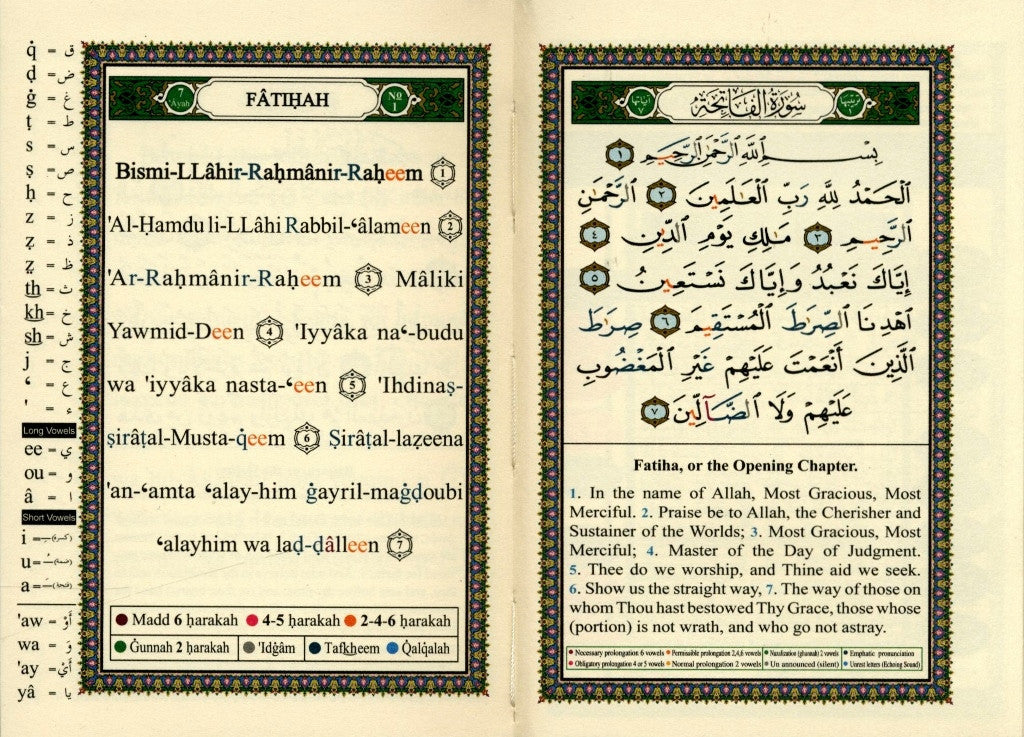 q̇ = ق
ḍ = ض
ġ = غ
ṭ = ط
s = س
ṣ = ص
ḥ = ح
z = ز
ẓ = ذ
ẓ = ظ
th = ث
kh = خ
sh = ش
j = ج
ʿ = ع
' = ء
Long Vowels
ee = ي
ou = و
â = ا
Short Vowels
i = ـِـ (كسرة)
u = ـُـ (ضمة)
a = ـَـ (فتحة)
'aw = أَوْ
wa = وَ
'ay = أَيْ
yâ = يا
7 'Ayah
FÂTIḤAH
No 1
Bismi-LLâhir-Raḥmânir-Raḥeem 1
'Al-Ḥamdu li-LLâhi Rabbil-ʿâlameen 2
'Ar-Raḥmânir-Raḥeem 3 Mâliki
Yawmid-Deen 4 'Iyyâka naʿ-budu
wa 'iyyâka nasta-ʿeen 5 'Ihdinaṣ-
ṣirâṭal-Musta-q̇eem 6 Ṣirâṭal-laẓeena
'an-ʿamta ʿalay-him ġayril-maġḍoubi
ʿalayhim wa laḍ-ḍâlleen 7
Madd 6 ḥarakah 4-5 ḥarakah 2-4-6 ḥarakah
Ġunnah 2 ḥarakah 'Idġâm Tafkheem Q̇alq̇alah
آياتها ٧
سُورَةُ الفَاتِحَة
ترتيبها ١
بِسْمِ ٱللَّهِ ٱلرَّحْمَٰنِ ٱلرَّحِيمِ ١
ٱلْحَمْدُ لِلَّهِ رَبِّ ٱلْعَٰلَمِينَ ٢ ٱلرَّحْمَٰنِ
ٱلرَّحِيمِ ٣ مَٰلِكِ يَوْمِ ٱلدِّينِ ٤
إِيَّاكَ نَعْبُدُ وَإِيَّاكَ نَسْتَعِينُ ٥
ٱهْدِنَا ٱلصِّرَٰطَ ٱلْمُسْتَقِيمَ ٦ صِرَٰطَ
ٱلَّذِينَ أَنْعَمْتَ عَلَيْهِمْ غَيْرِ ٱلْمَغْضُوبِ
عَلَيْهِمْ وَلَا ٱلضَّآلِّينَ ٧
Fatiha, or the Opening Chapter.
1. In the name of Allah, Most Gracious, Most
Merciful. 2. Praise be to Allah, the Cherisher and
Sustainer of the Worlds; 3. Most Gracious, Most
Merciful; 4. Master of the Day of Judgment.
5. Thee do we worship, and Thine aid we seek.
6. Show us the straight way, 7. The way of those on
whom Thou hast bestowed Thy Grace, those whose
(portion) is not wrath, and who go not astray.
Necessary prolongation 6 vowels Permissible prolongation 2,4,6 vowels Nazalization (ghunnah) 2 vowels Emphatic pronunciation
Obligatory prolongation 4 or 5 vowels Normal prolongation 2 vowels Un announced (silent) Unrest letters (Echoing Sound)